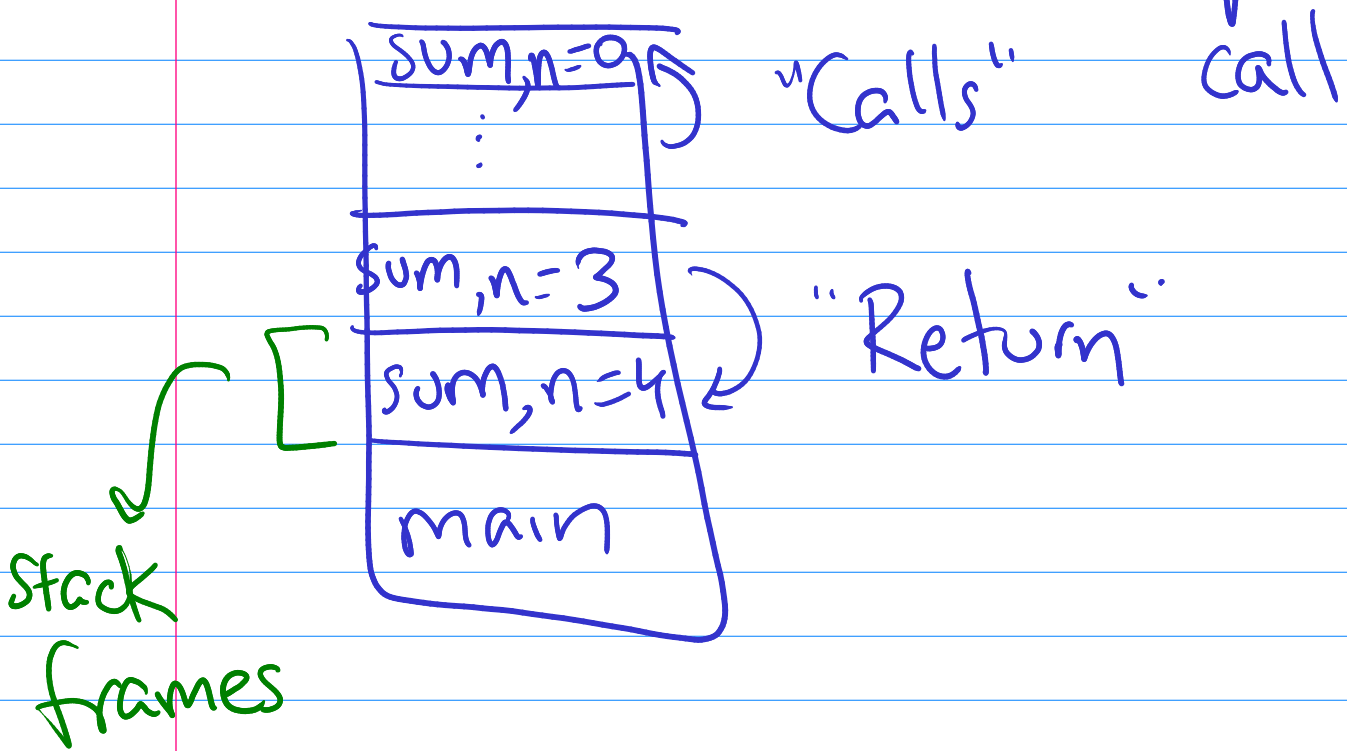 sum, n=0
"Calls"
call
⋮
sum, n=3
"Return"
sum, n=4
main
stack
frames